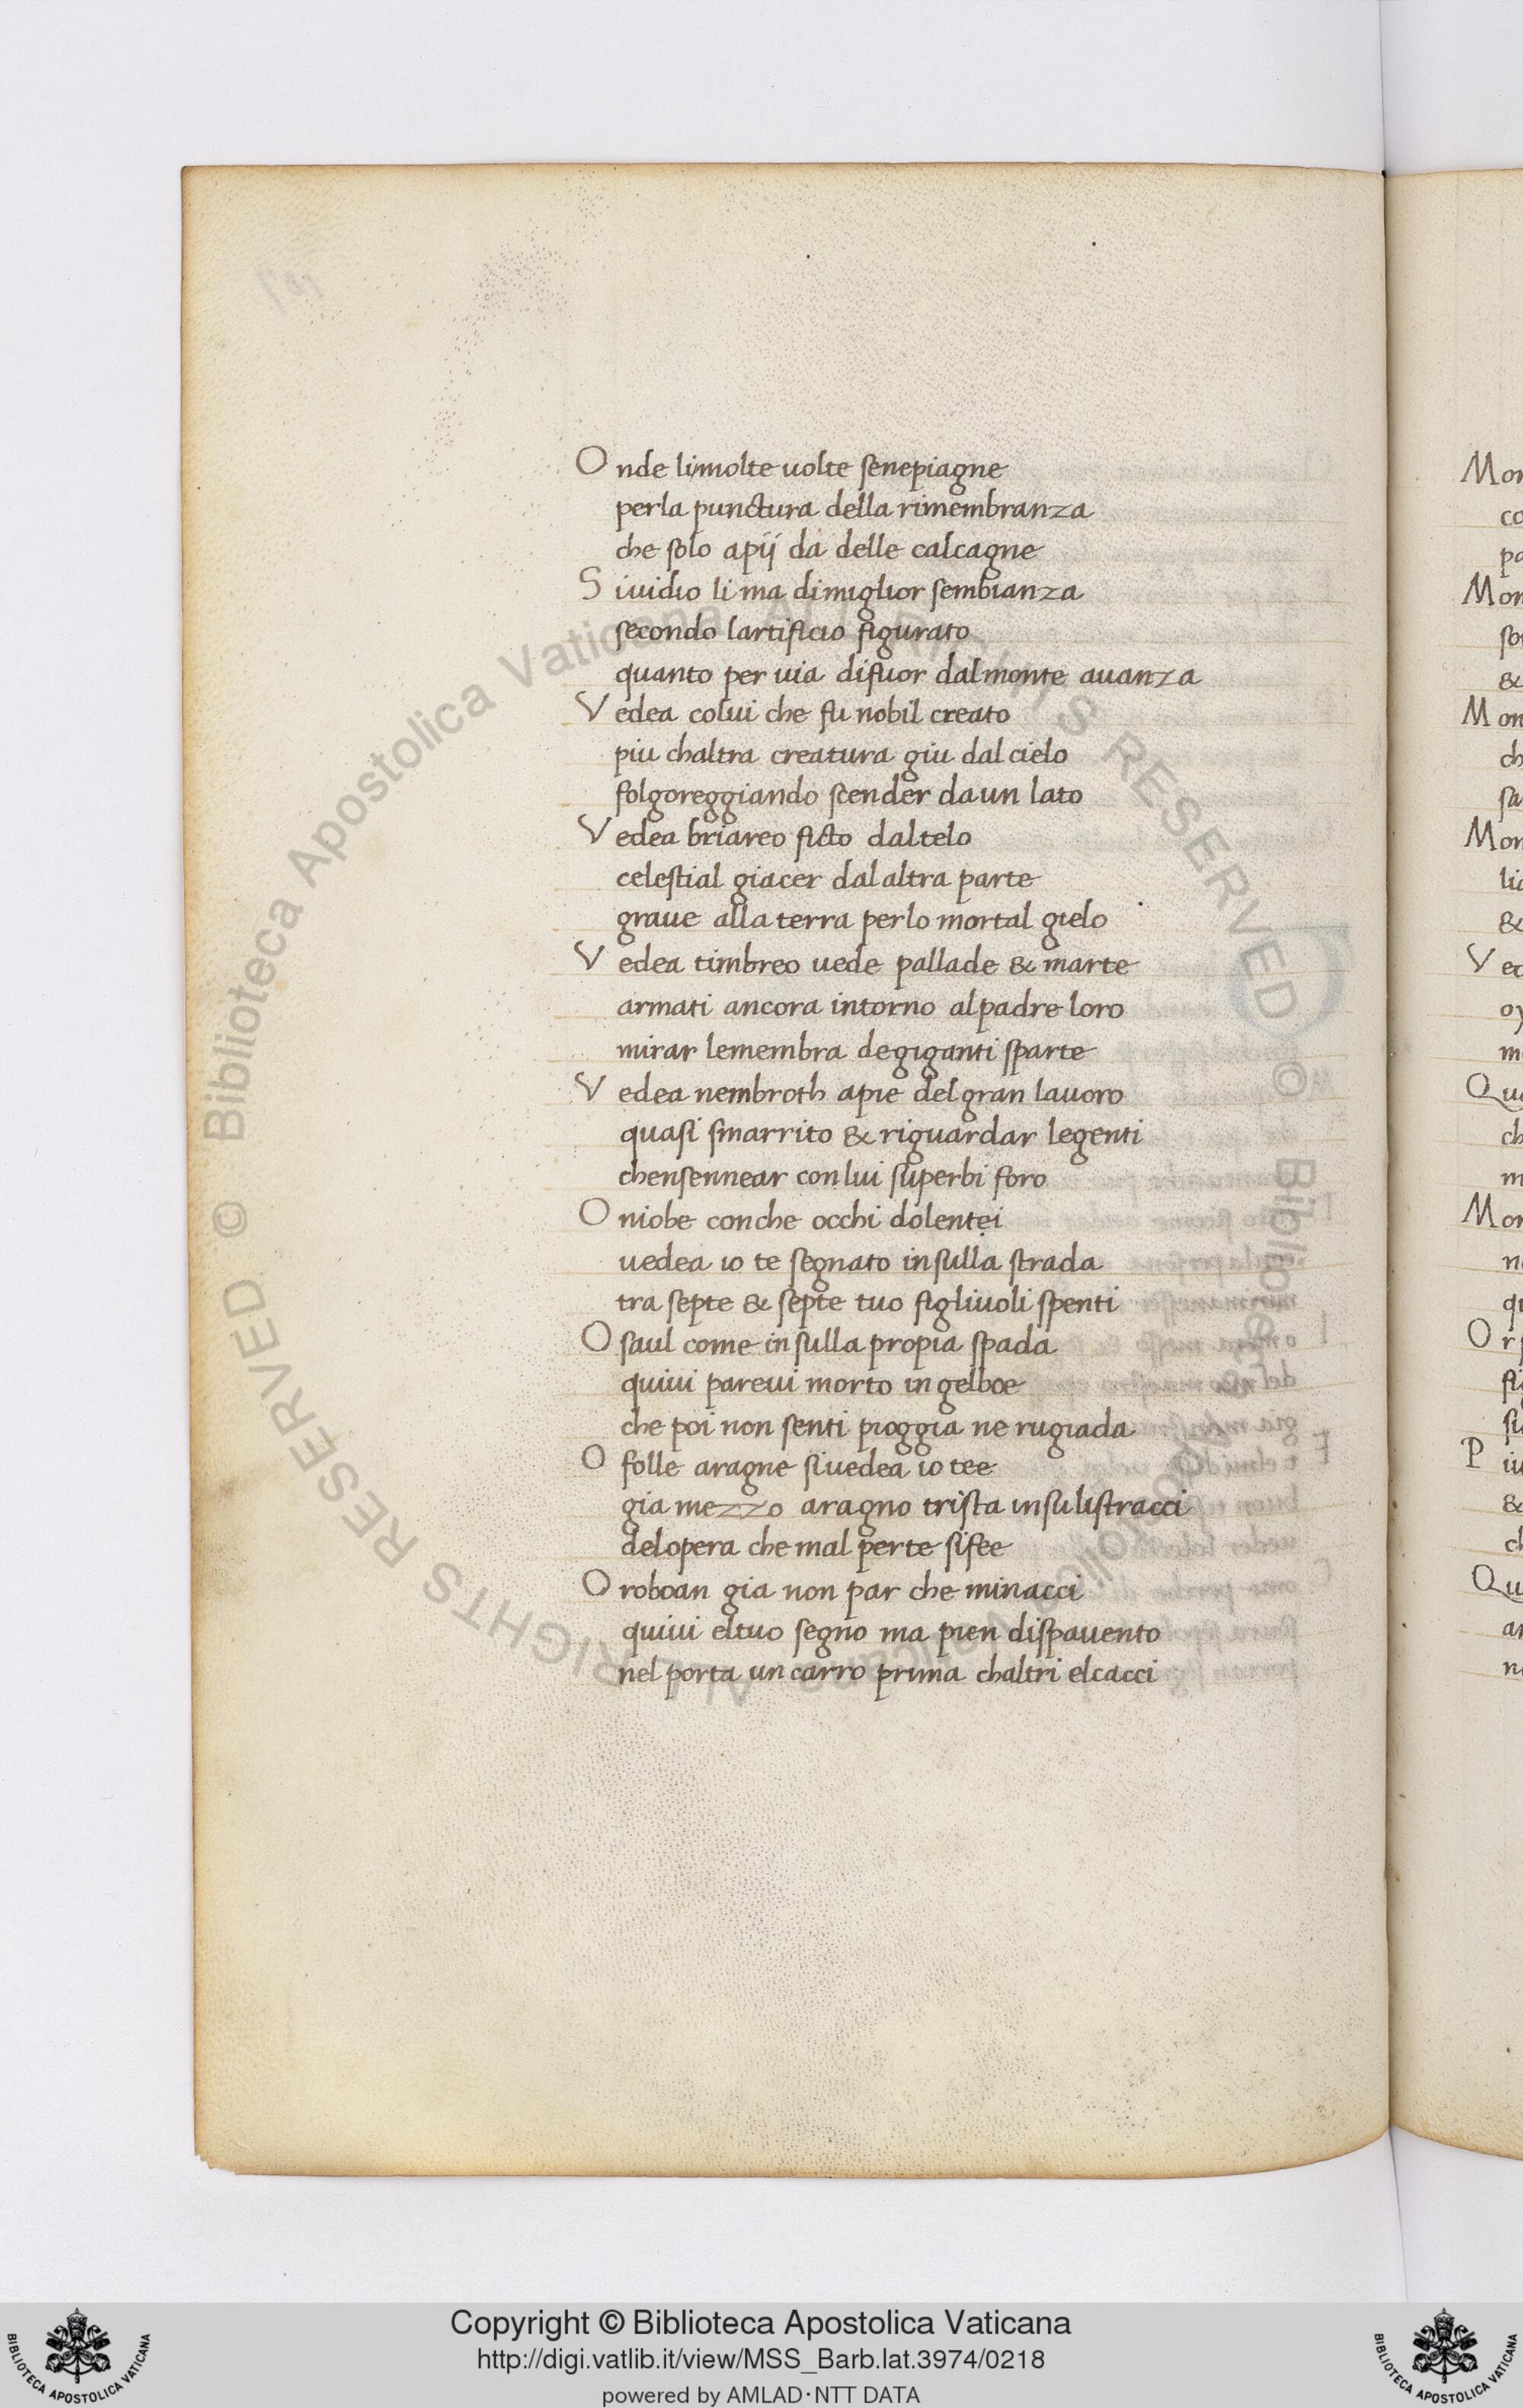 O nde li molte uolte senepiagne
perla punctura della rimembranza
che solo apij da delle calcagne
S iuidio li ma dimiglior sembianza
secondo lartificio figurato
quanto per uia difuor dalmonte auanza
V edea colui che fu nobil creato
piu chaltra creatura giu dal cielo
folgoreggiando scender daun lato
V edea briareo ficto daltelo
celestial giacer dalaltra parte
graue alla terra perlo mortal gielo
V edea timbreo uede pallade & marte
armati ancora intorno alpadre loro
mirar lemembra degiganti sparte
V edea nembroth apie delgran lauoro
quasi smarrito & riguardar legenti
chensennear conlui superbi foro
O niobe conche occhi dolentei
uedea io te segnato insulla strada
tra septe & septe tuo figliuoli spenti
O saul come insulla propia spada
quiui pareui morto in gelboe
che poi non senti pioggia ne rugiada
O folle aragne siuedea io tee
gia mezzo aragno trista insulistracci
delopera che mal perte sifee
O roboan gia non par che minacci
quiui eltuo segno ma pien dispauento
nel porta un carro prima chaltri elcacci
Mon
co
pa
Mon
& 
Mon
ch
sa
Mon
&
V ed
m
Qua
ch
m
Mon
O r
P iu
&
ch
Qu
Biblioteca Apostolica Vaticana ALL RIGHTS RESERVED © Biblioteca Apostolica Vaticana ALL RIGHTS RESERVED ©
Copyright © Biblioteca Apostolica Vaticana
http://digi.vatlib.it/view/MSS_Barb.lat.3974/0218
powered by AMLAD·NTT DATA
BIBLIOTECA APOSTOLICA VATICANA
BIBLIOTECA APOSTOLICA VATICANA